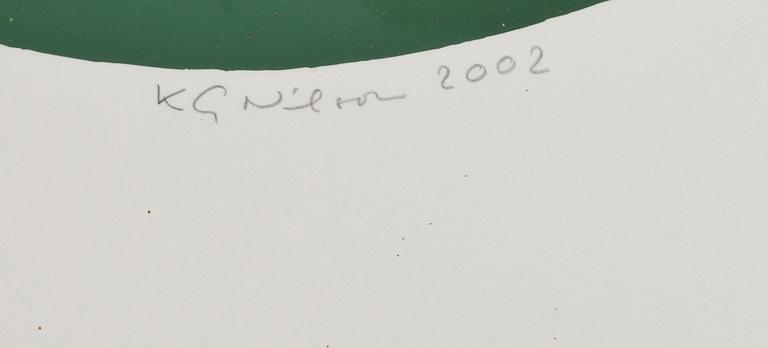 KG Nilson 2002